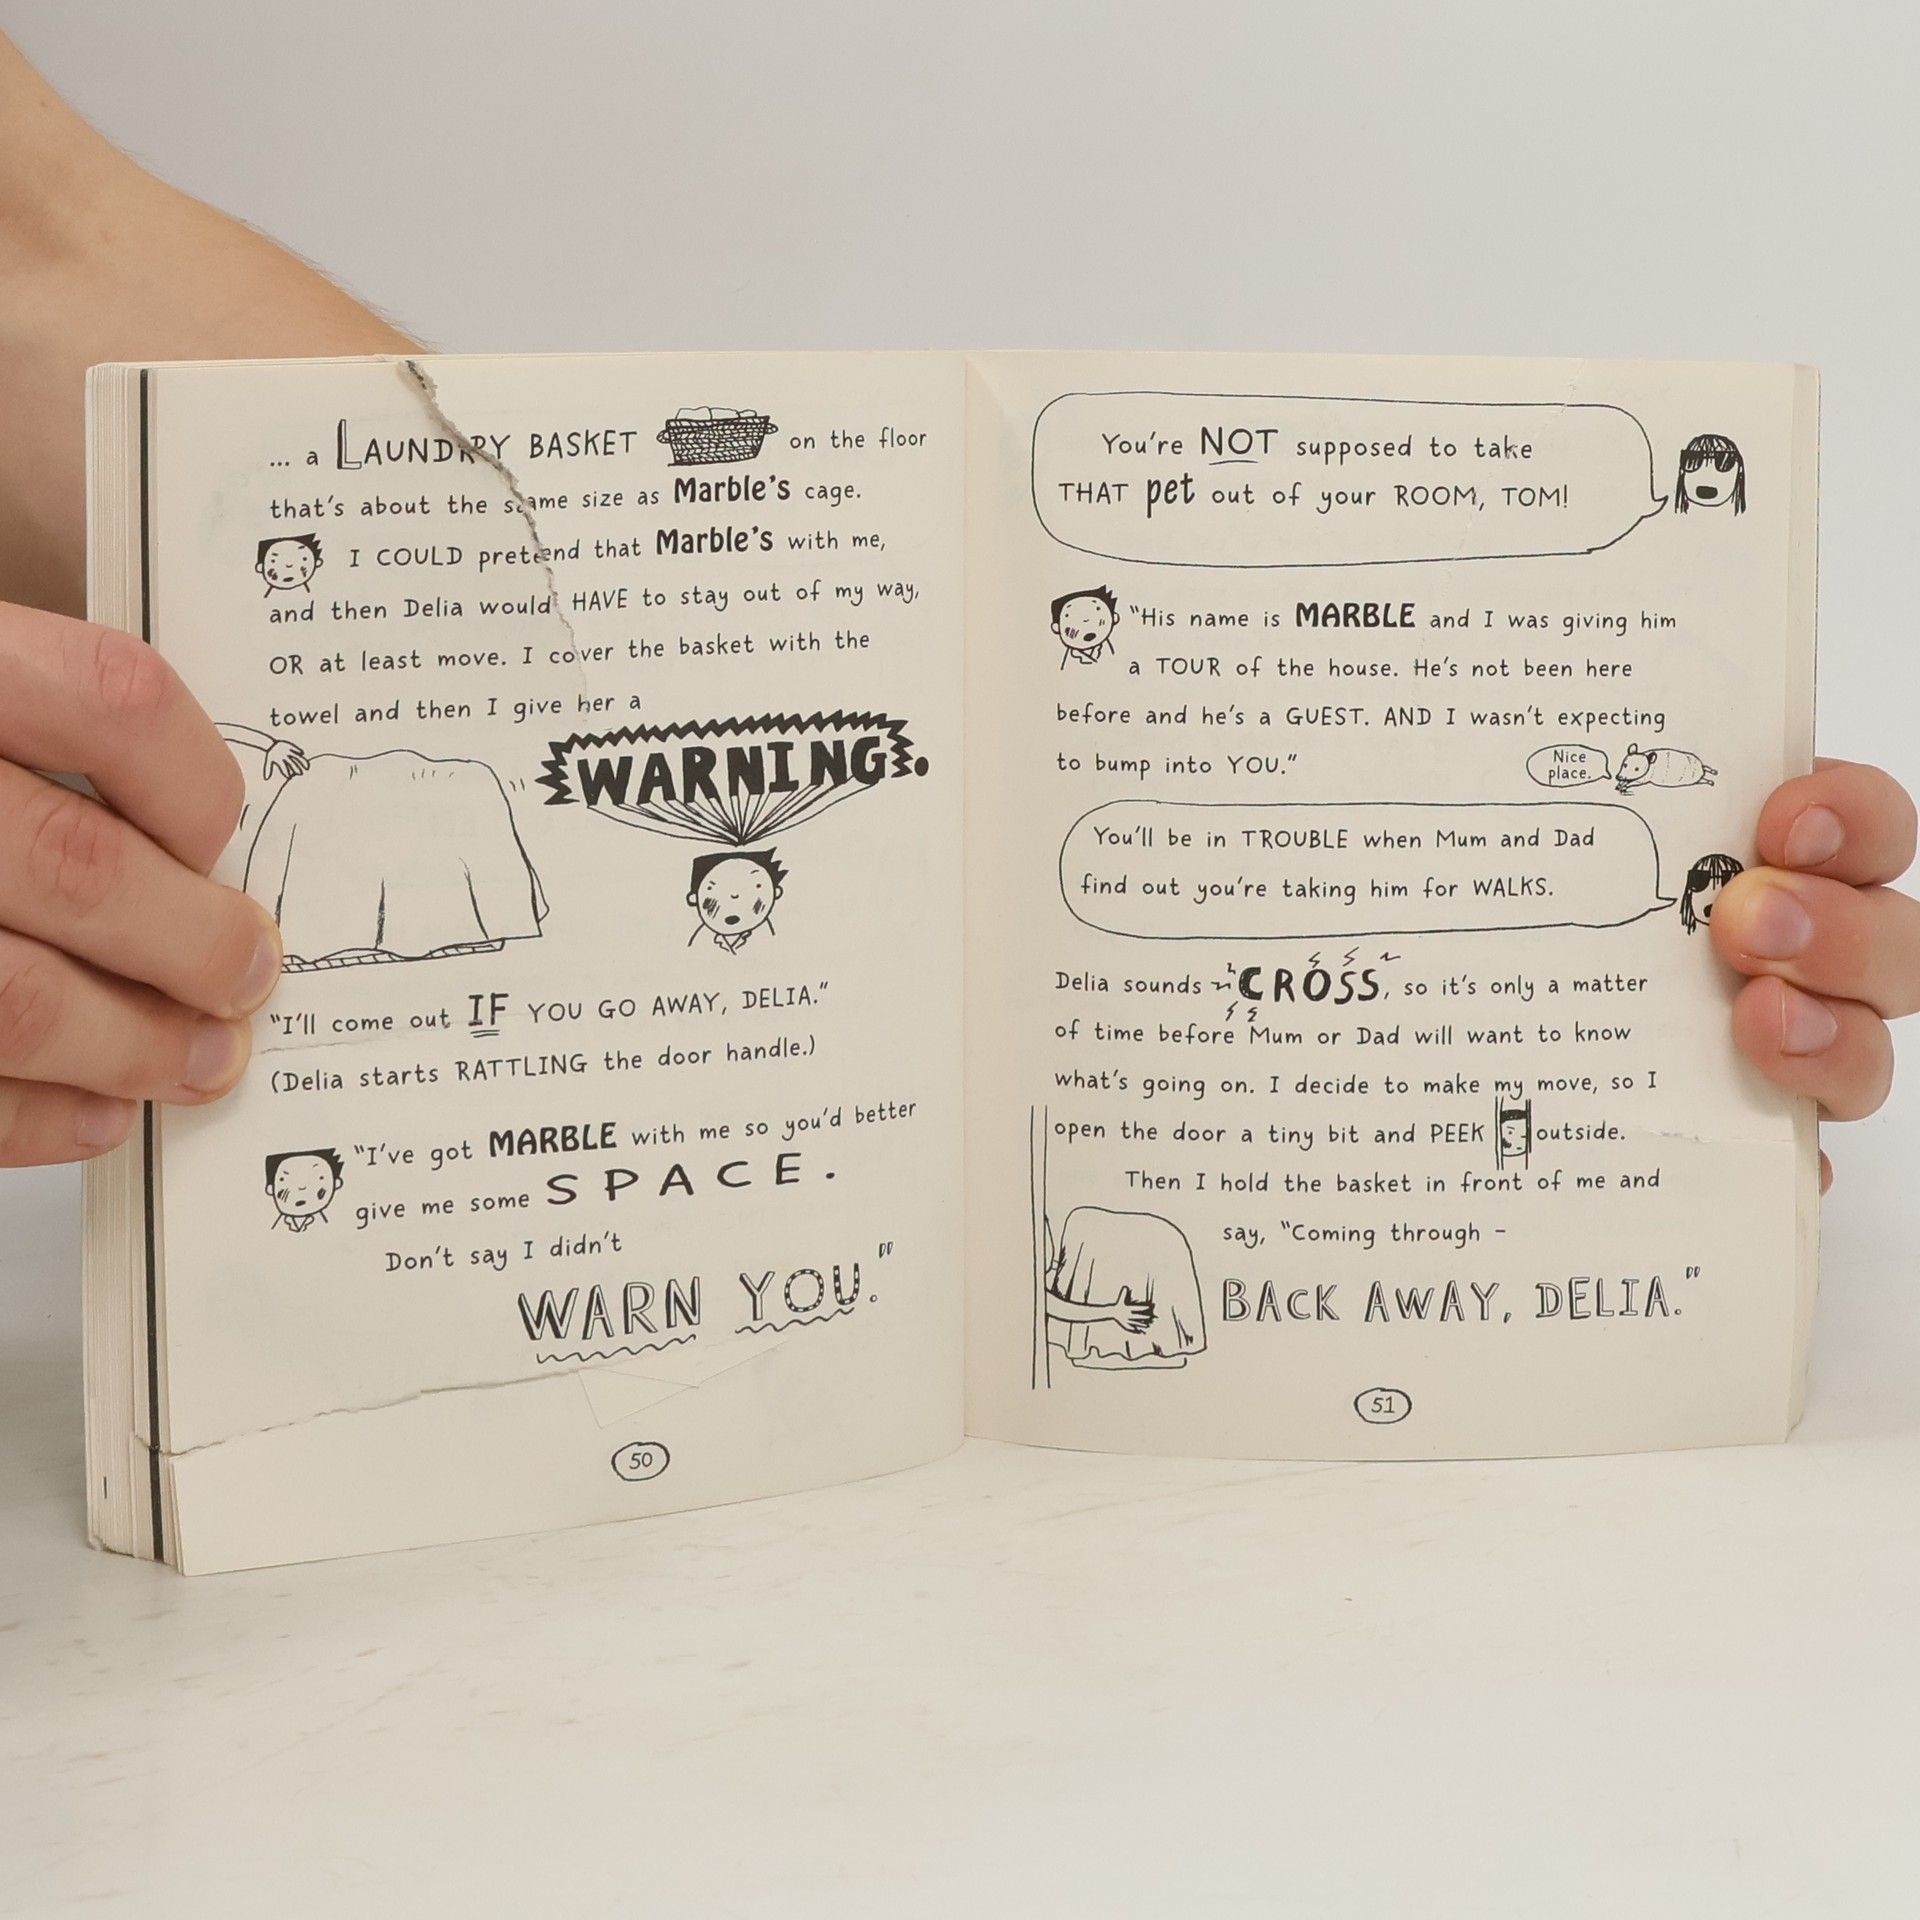 ... a LAUNDRY BASKET on the floor
that's about the same size as Marble's cage.
I COULD pretend that Marble's with me,
and then Delia would HAVE to stay out of my way,
OR at least move. I cover the basket with the
towel and then I give her a
WARNING.
"I'll come out IF YOU GO AWAY, DELIA."
(Delia starts RATTLING the door handle.)
"I've got MARBLE with me so you'd better
give me some SPACE.
Don't say I didn't
WARN YOU."
50
You're NOT supposed to take
THAT pet out of your ROOM, TOM!
"His name is MARBLE and I was giving him
a TOUR of the house. He's not been here
before and he's a GUEST. AND I wasn't expecting
to bump into YOU."
Nice
place.
You'll be in TROUBLE when Mum and Dad
find out you're taking him for WALKS.
Delia sounds CROSS, so it's only a matter
of time before Mum or Dad will want to know
what's going on. I decide to make my move, so I
open the door a tiny bit and PEEK outside.
Then I hold the basket in front of me and
say, "Coming through –
BACK AWAY, DELIA."
51